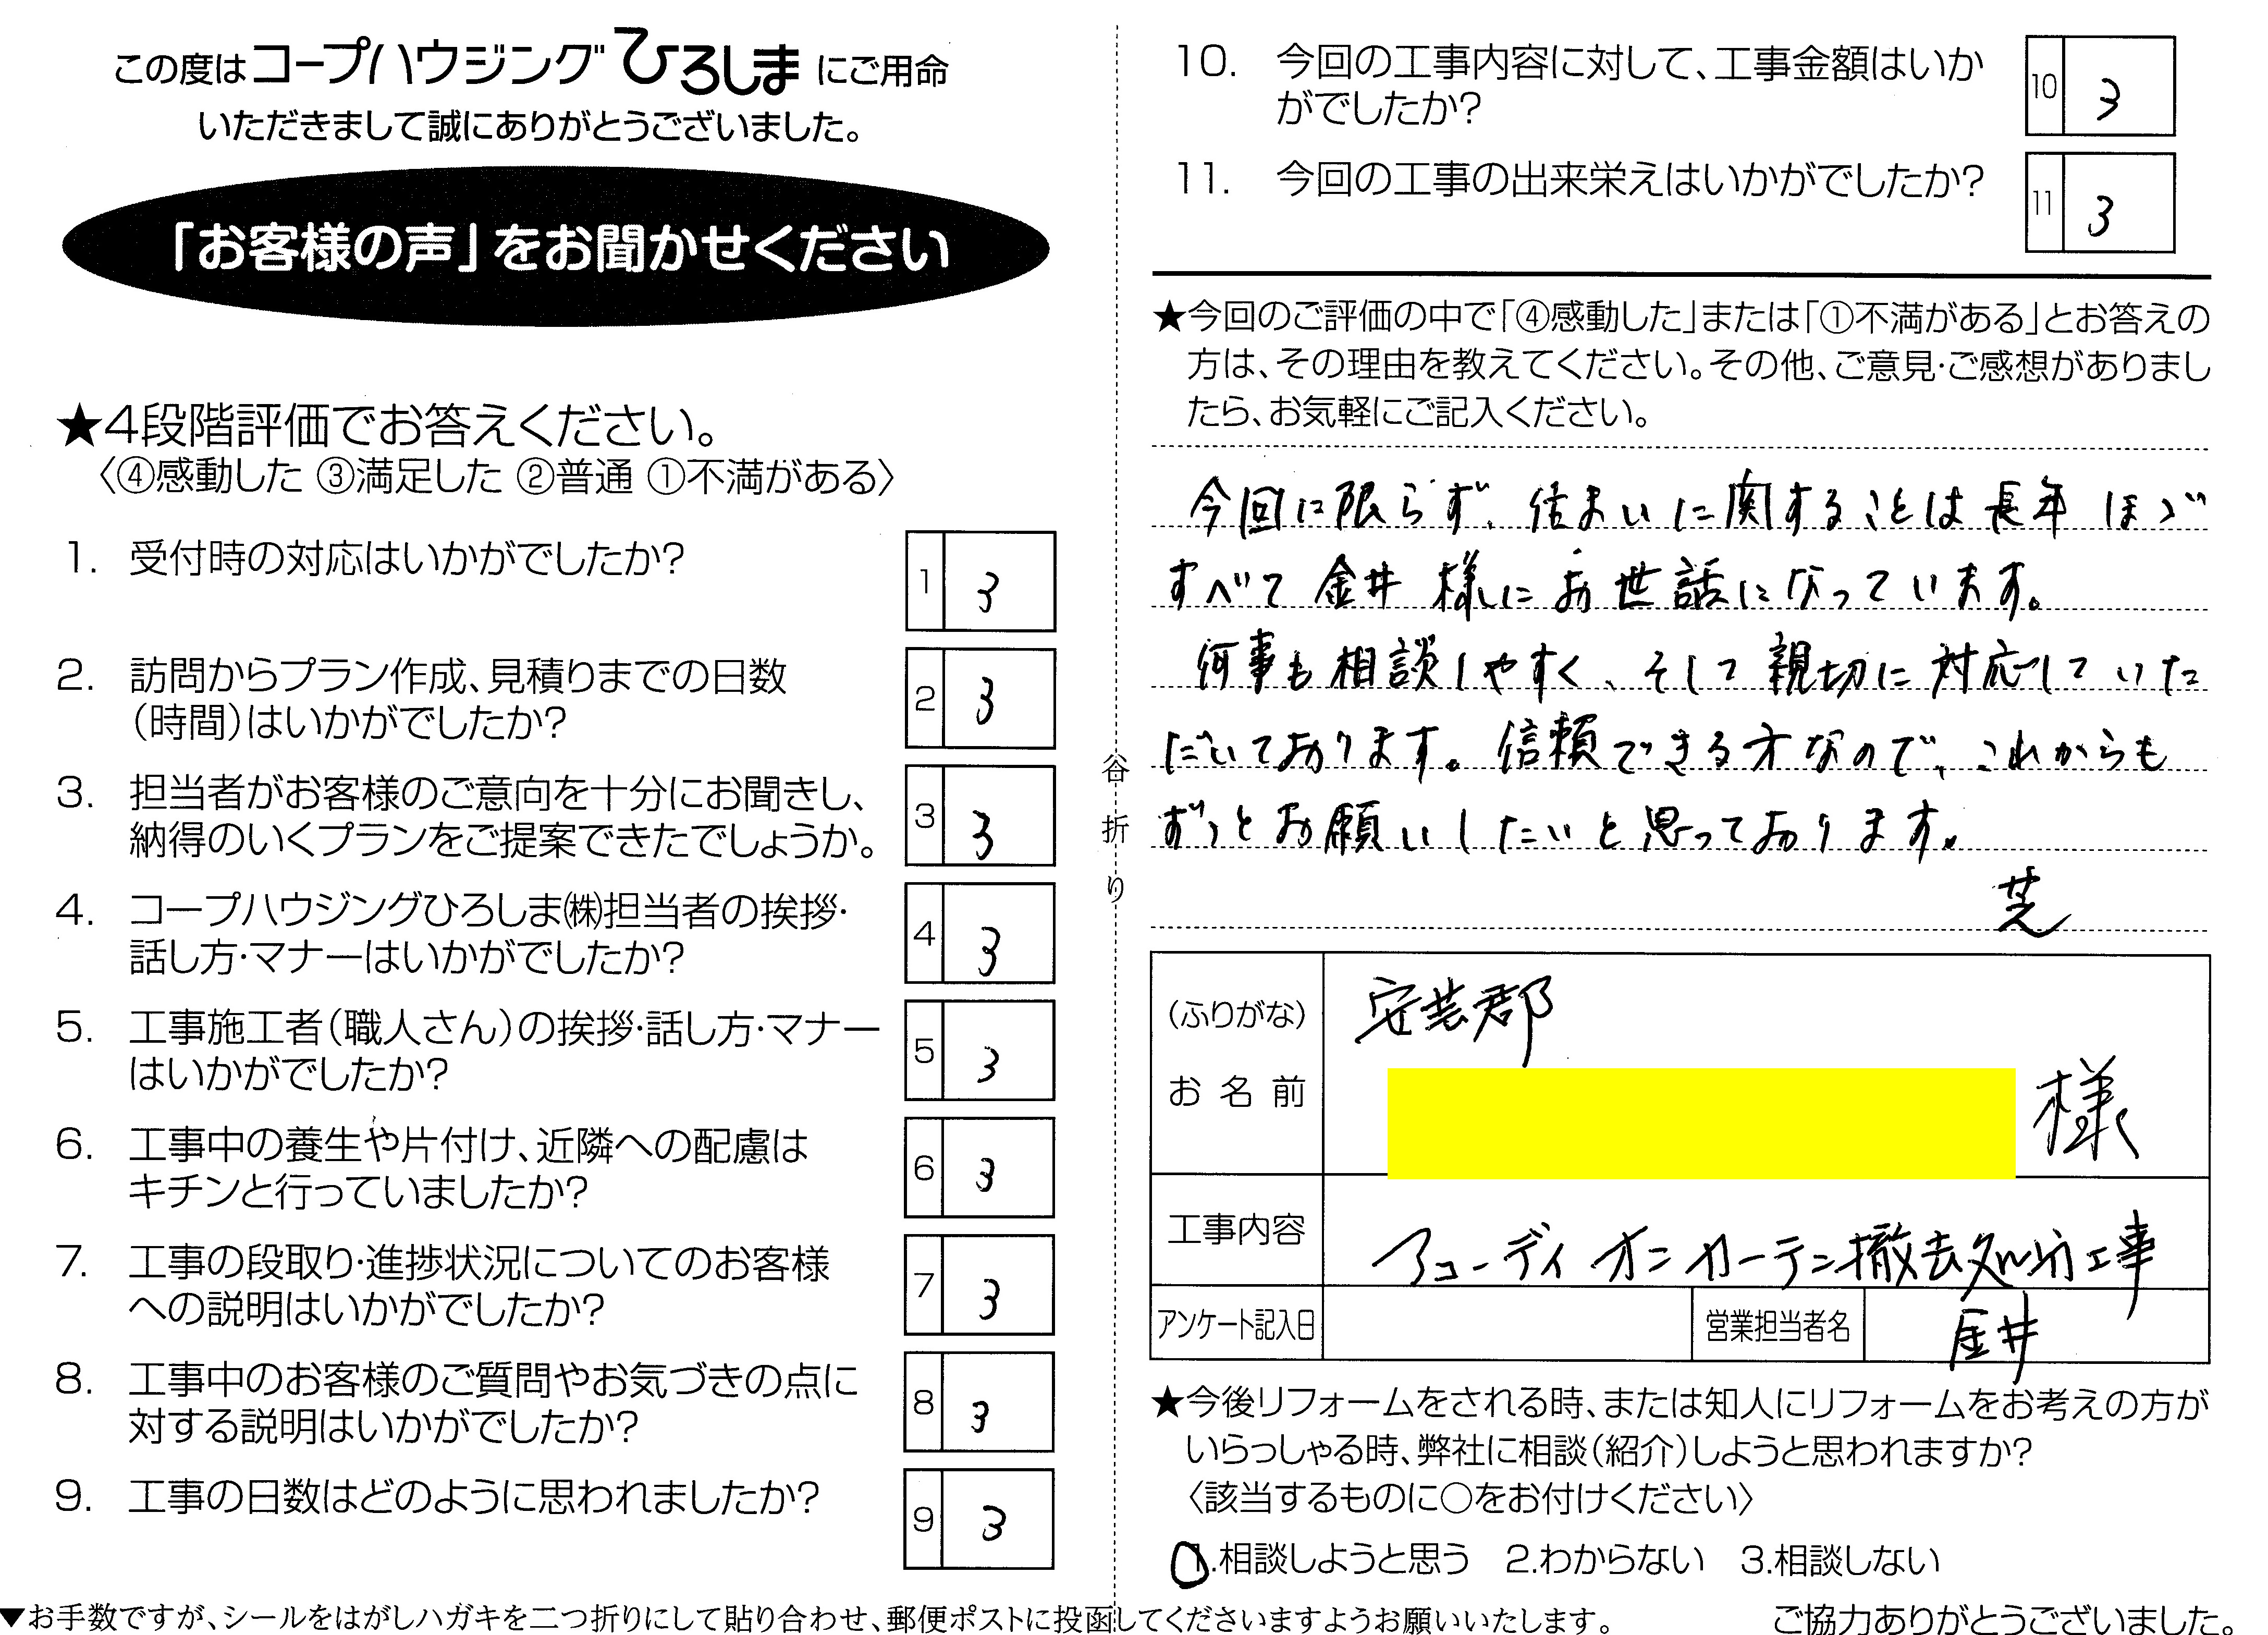 この度はコープハウジングひろしまにご用命
いただきまして誠にありがとうございました。
「お客様の声」をお聞かせください
★4段階評価でお答えください。
〈④感動した ③満足した ②普通 ①不満がある〉
1. 受付時の対応はいかがでしたか?
1 3
2. 訪問からプラン作成、見積りまでの日数
(時間)はいかがでしたか?
2 3
3. 担当者がお客様のご意向を十分にお聞きし、
納得のいくプランをご提案できたでしょうか。
3 3
4. コープハウジングひろしま㈱担当者の挨拶・
話し方・マナーはいかがでしたか?
4 3
5. 工事施工者(職人さん)の挨拶・話し方・マナー
はいかがでしたか?
5 3
6. 工事中の養生や片付け、近隣への配慮は
キチンと行っていましたか?
6 3
7. 工事の段取り・進捗状況についてのお客様
への説明はいかがでしたか?
7 3
8. 工事中のお客様のご質問やお気づきの点に
対する説明はいかがでしたか?
8 3
9. 工事の日数はどのように思われましたか?
9 3
谷折り
10. 今回の工事内容に対して、工事金額はいか
がでしたか?
10 3
11. 今回の工事の出来栄えはいかがでしたか?
11 3
★今回のご評価の中で「④感動した」または「①不満がある」とお答えの
方は、その理由を教えてください。その他、ご意見・ご感想がありまし
たら、お気軽にご記入ください。
今回に限らず、住まいに関することは長年ほぼ
すべて金井様にお世話になっています。
何事も相談しやすく、そして親切に対応していた
だいております。信頼できる方なので、これからも
ずっとお願いしたいと思っております。
(ふりがな)
お名前
安芸郡
様
工事内容
アコーディオンカーテン撤去処分工事
アンケート記入日
営業担当者名
金井
★今後リフォームをされる時、または知人にリフォームをお考えの方が
いらっしゃる時、弊社に相談(紹介)しようと思われますか?
〈該当するものに○をお付けください〉
1.相談しようと思う 2.わからない 3.相談しない
▼お手数ですが、シールをはがしハガキを二つ折りにして貼り合わせ、郵便ポストに投函してくださいますようお願いいたします。
ご協力ありがとうございました。